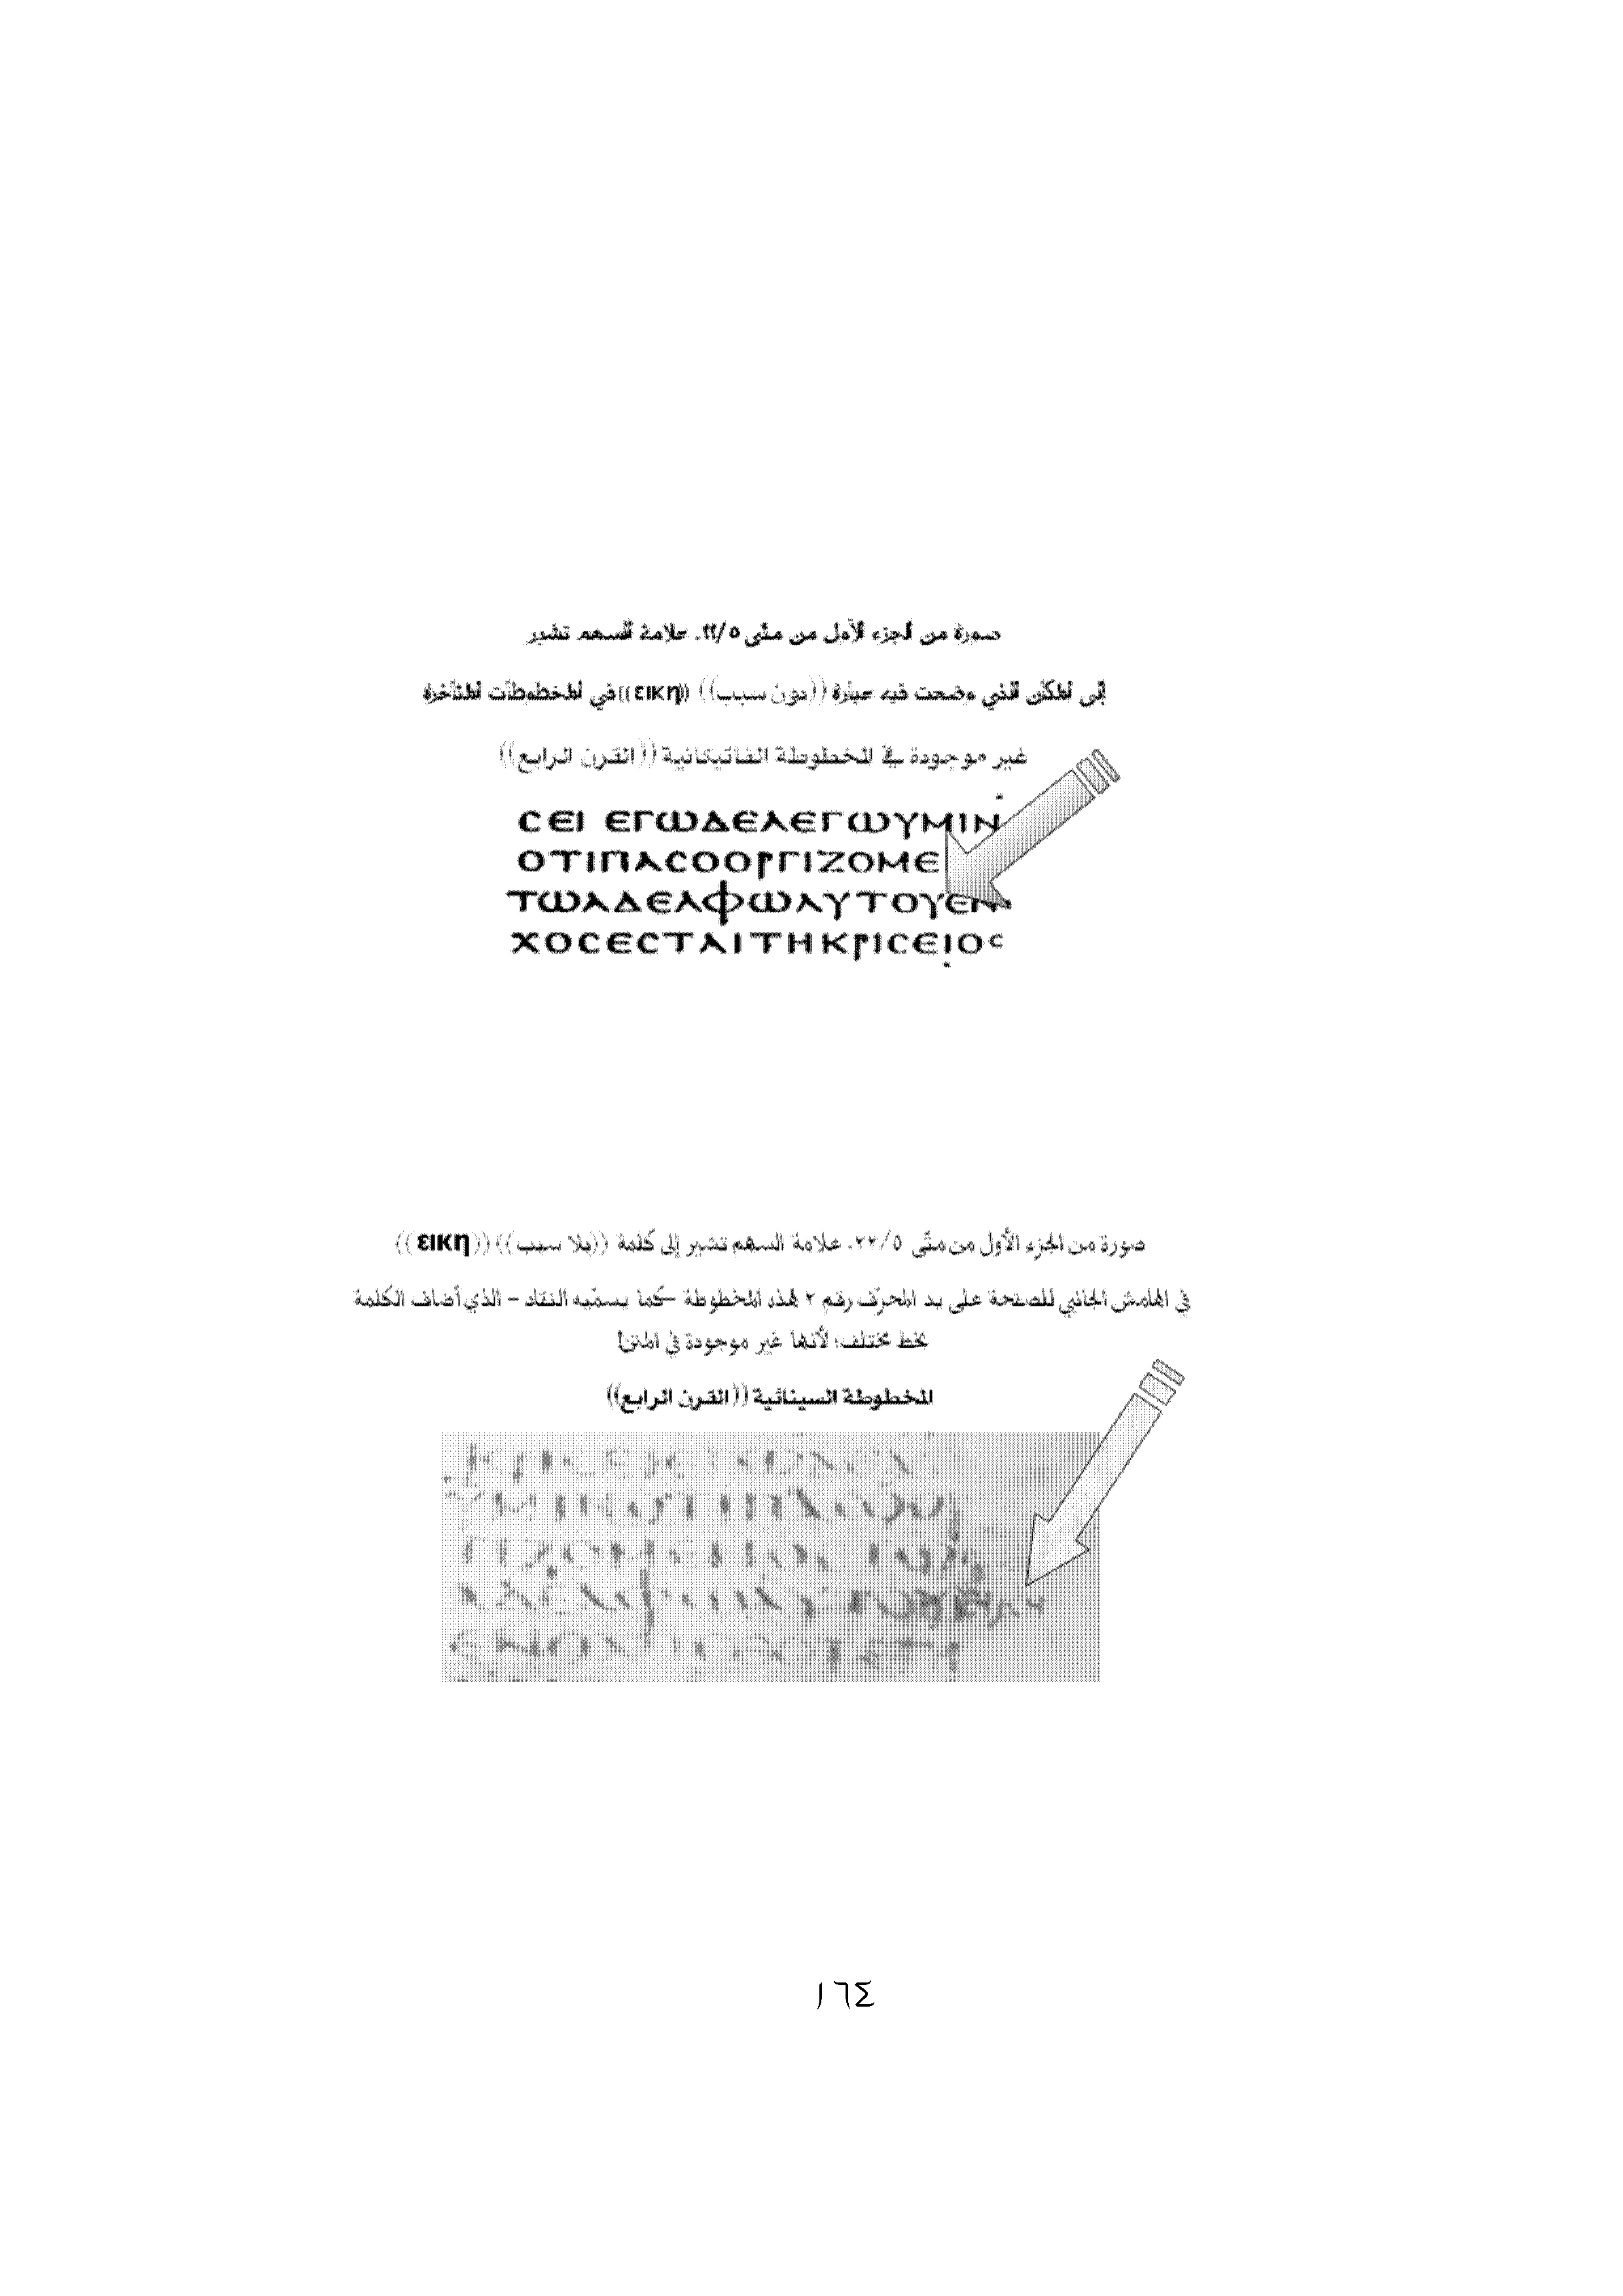 صورة من الجزء الأول من متّى ٢٢/٥. علامة السهم تشير
إلى المكان الذي وضعت فيه عبارة ((دون سبب)) ((εικη)) في المخطوطات المتأخرة
غير موجودة في المخطوطة الفاتيكانية ((القرن الرابع))
ϹΕΙ ΕΓΩΔΕΛΕΓΩΥΜΙΝ
ΟΤΙΠΑϹΟΟΡΓΙΖΟΜΕ
ΤΩΑΔΕΛΦΩΑΥΤΟΥΕΝ
ΧΟϹΕϹΤΑΙΤΗΚΡΙϹΕΙΟϹ
صورة من الجزء الأول من متّى ٢٢/٥. علامة السهم تشير إلى كلمة ((بلا سبب)) ((εικη))
في الهامش الجانبي للصفحة على يد المحرّف رقم ٢ لهذه المخطوطة –كما يسمّيه النقاد – الذي أضاف الكلمة
بخط مختلف؛ لأنها غير موجودة في المتن!
المخطوطة السينائية ((القرن الرابع))
١٦٤